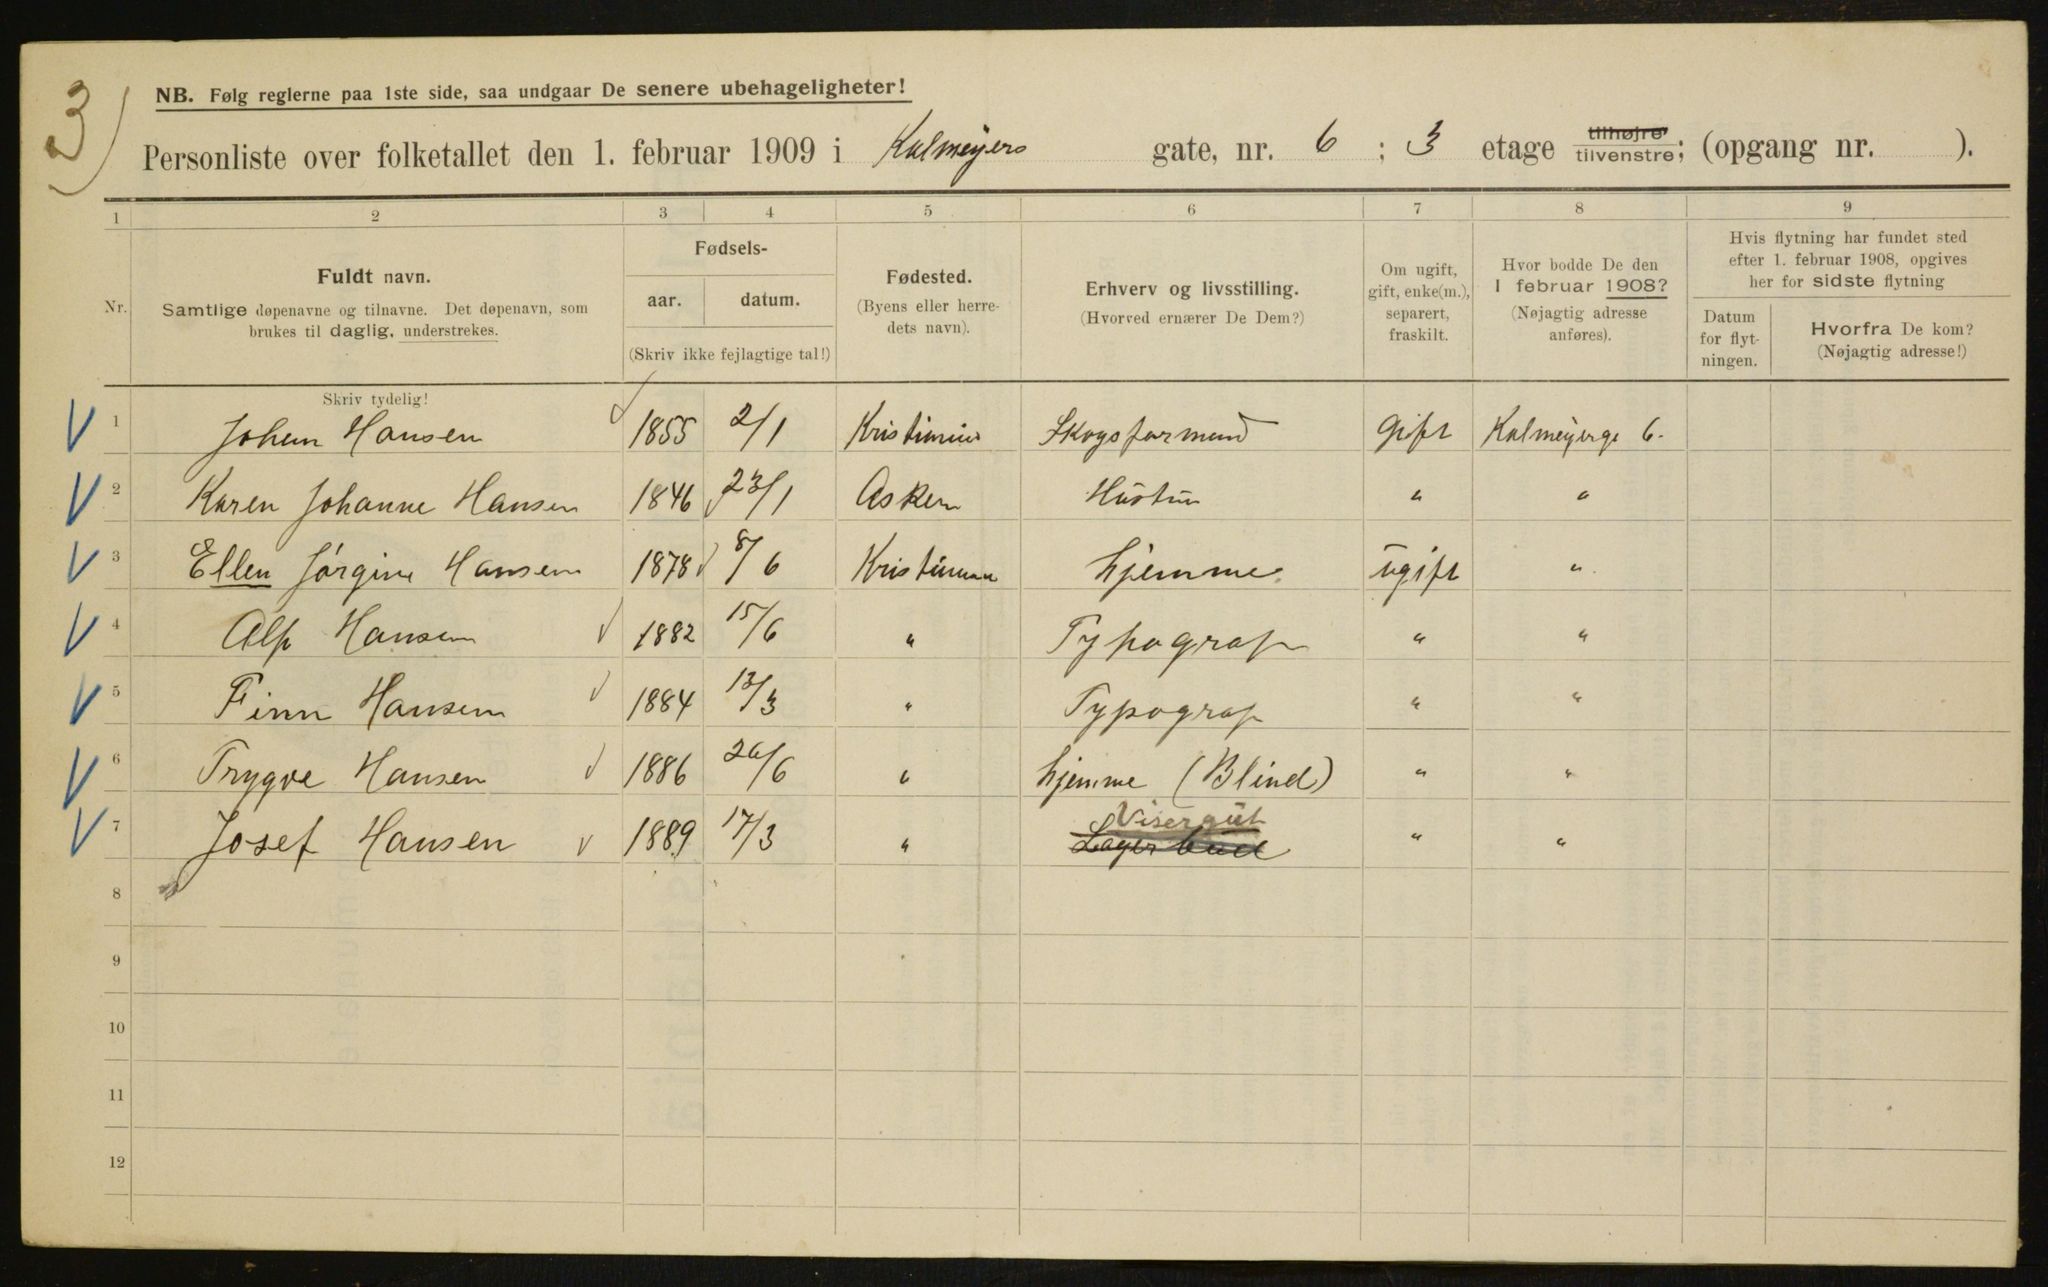 3)
NB. Følg reglerne paa 1ste side, saa undgaar De senere ubehageligheter!
Personliste over folketallet den 1. februar 1909 i Kalmeyers gate, nr. 6 ; 3 etage tilhøjre tilvenstre; (opgang nr. ).
1 2 3 4 5 6 7 8 9
Nr.
Fuldt navn.
Samtlige døpenavne og tilnavne. Det døpenavn, som
brukes til daglig, understrekes.
Fødsels-
aar. datum.
(Skriv ikke fejlagtige tal!)
Fødested.
(Byens eller herre-
dets navn).
Erhverv og livsstilling.
(Hvorved ernærer De Dem?)
Om ugift,
gift, enke(m.),
separert,
fraskilt.
Hvor bodde De den
1 februar 1908?
(Nøjagtig adresse
anføres).
Hvis flytning har fundet sted
efter 1. februar 1908, opgives
her for sidste flytning
Datum
for flyt-
ningen.
Hvorfra De kom?
(Nøjagtig adresse!)
Skriv tydelig!
1 Johan Hansen 1855 2/1 Kristiania Skogsformand Gift Kalmeyergt 6.
2 Karen Johanne Hansen 1846 23/1 Asker Hustru " "
3 Ellen Jørgine Hansen 1878 8/6 Kristiania hjemme ugift "
4 Alf Hansen 1882 15/6 " Typograf " "
5 Finn Hansen 1884 13/3 " Typograf " "
6 Trygve Hansen 1886 26/6 " hjemme (Blind) " "
Visergut
7 Josef Hansen 1889 17/3 " Lagerbud " "
8
9
10
11
12